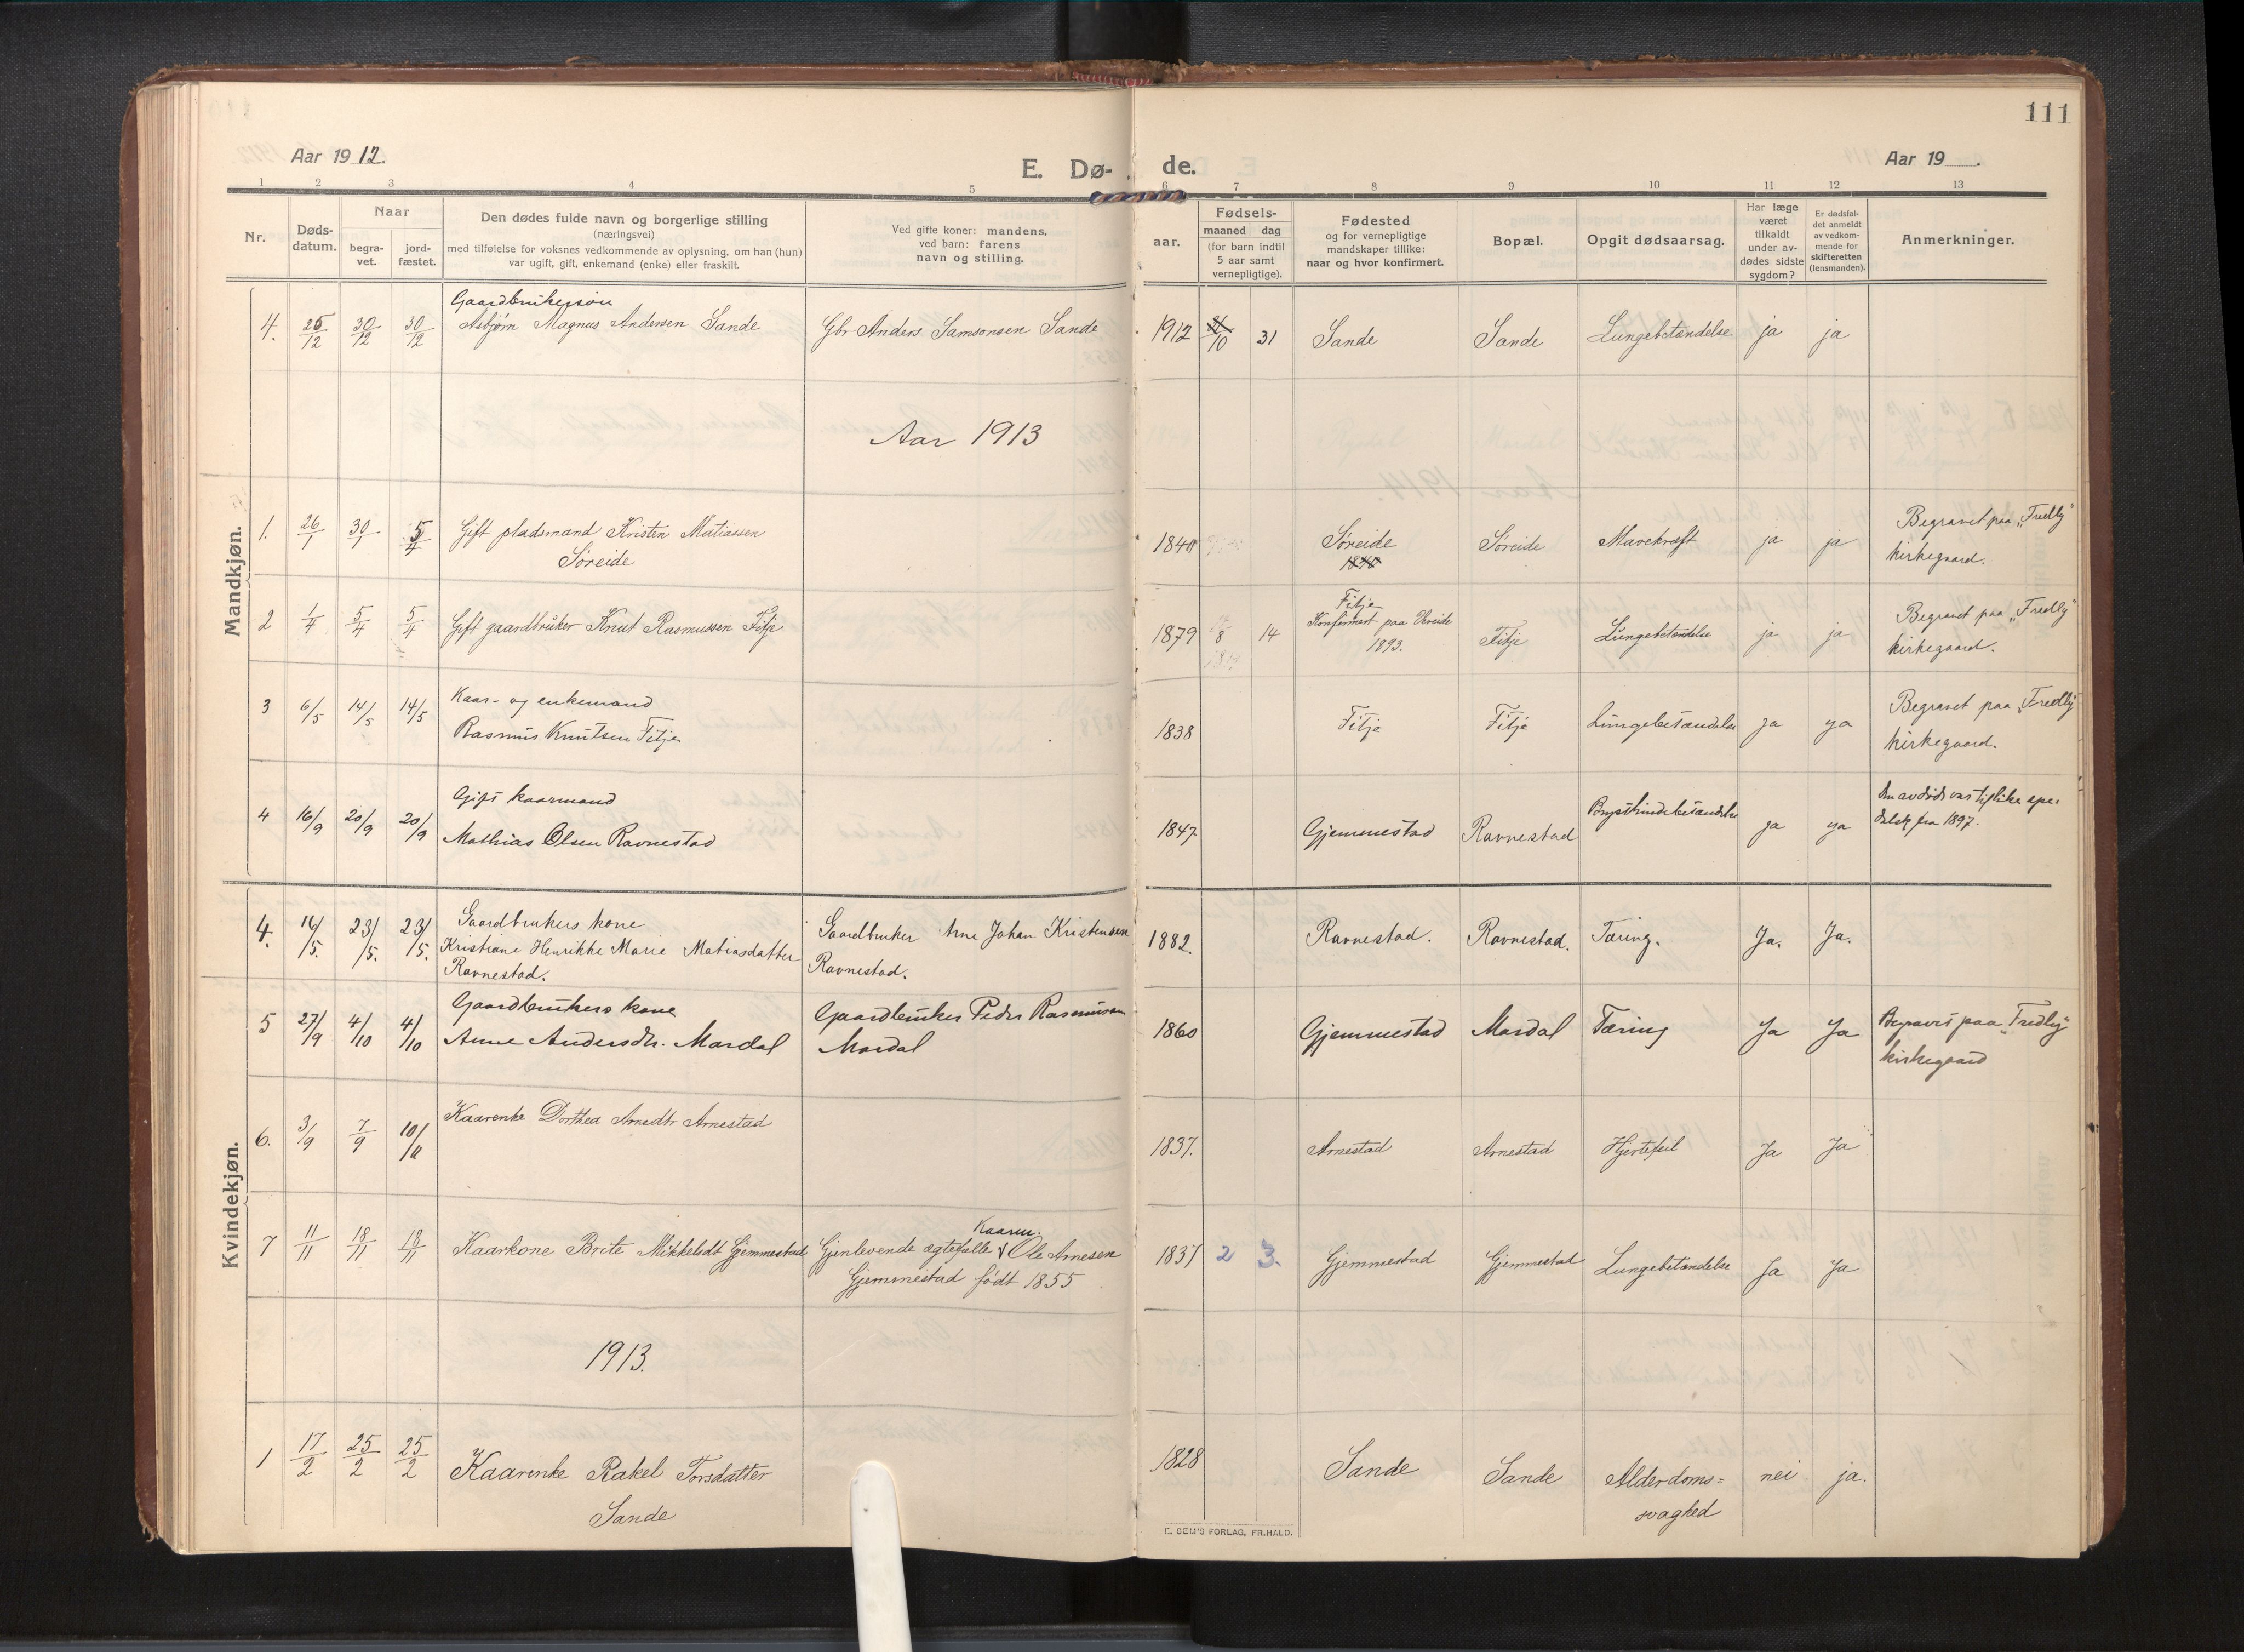 111
Aar 1912.
E. Dø- de.
Aar 19 .
1 2 3 4 5 6 7 8 9 10 11 12 13
Nr.
Døds-
datum.
Naar
begra-
vet.
jord-
fæstet.
Den dødes fulde navn og borgerlige stilling
(næringsvei)
med tilføielse for voksnes vedkommende av oplysning, om han (hun)
var ugift, gift, enkemand (enke) eller fraskilt.
Ved gifte koner: mandens,
ved barn: farens
navn og stilling.
Fødsels-
aar.
maaned dag
(for barn indtil
5 aar samt
vernepligtige).
Fødested
og for vernepligtige
mandskaper tillike:
naar og hvor konfirmert.
Bopæl.
Opgit dødsaarsag.
Har læge
været
tilkaldt
under av-
dødes sidste
sygdom?
Er dødsfal-
det anmeldt
av vedkom-
mende for
skifteretten
(lensmanden).
Anmerkninger.
Mandkjøn.
Gaardbrukersøn
4. 25/12 30/12 30/12 Asbjørn Magnus Andersen Sande Gbr Anders Samsonsen Sande 1912 10 31 Sande Sande Lungebetændelse ja ja
Aar 1913
1. 26/1 30/1 5/4 Gift pladsmand Kristen Matiassen Søreide Søreide Mavekræft ja ja Begravet paa "Fredly"
Søreide kirkegaard.
Fitje
2 1/4 5/4 5/4 Gift gaardbruker Knut Rasmussen Fitje 1879 8 14 Konfirmert paa Vereide Fitje Lungebetændelse ja ja Begravet paa "Fredly"
1893. kirkegaard.
Kaar- og enkemand
3 6/5 14/5 14/5 Rasmus Knutsen Fitje 1838 Fitje Fitje Lungebetændelse ja ja Begravet paa "Fredly"
kirkegaard.
Gift kaarmand
4 16/9 20/9 20/9 Mathias Olsen Ravnestad 1847 Gjemmestad Ravnestad Brysthindebetændelse ja ja Den avdøde var tillike spe-
dalsk fra 1897.
Kvindekjøn.
Gaardbrukers kone
4. 16/5. 23/5. 23/5. Kristiane Henrikke Marie Matiasdatter Gaardbruker Arne Johan Kristensen 1882. Ravnestad. Ravnestad. Tæring. Ja. Ja.
Ravnestad. Ravnestad.
Gaardbrukers kone
5 27/9 4/10 4/10 Anne Andersdtr. Mardal Gaardbruker Peder Rasmussen 1860 Gjemmestad Mardal Tæring Ja Ja Begravet paa "Fredly"
Mardal kirkegaard
6. 3/9 7/9 10/11 Kaarenke Dorthea Arnedtr Arnestad 1837. Arnestad Arnestad Hjertefeil Ja Ja
Kaarm.
7 11/11 18/11 18/11 Kaarkone Brite Mikkelsdt Gjemmestad Gjenlevende ægtefælle Ole Arnesen 1837 2 3. Gjemmestad Gjemmestad Lungebetændelse Ja Ja
Gjemmestad født 1855
1913.
1 17/2 25/2 25/2 Kaarenke Rakel Torsdatter 1828 Sande Sande Alderdoms= nei ja.
Sande svaghed
E. SEM'S FORLAG, FR.HALD.